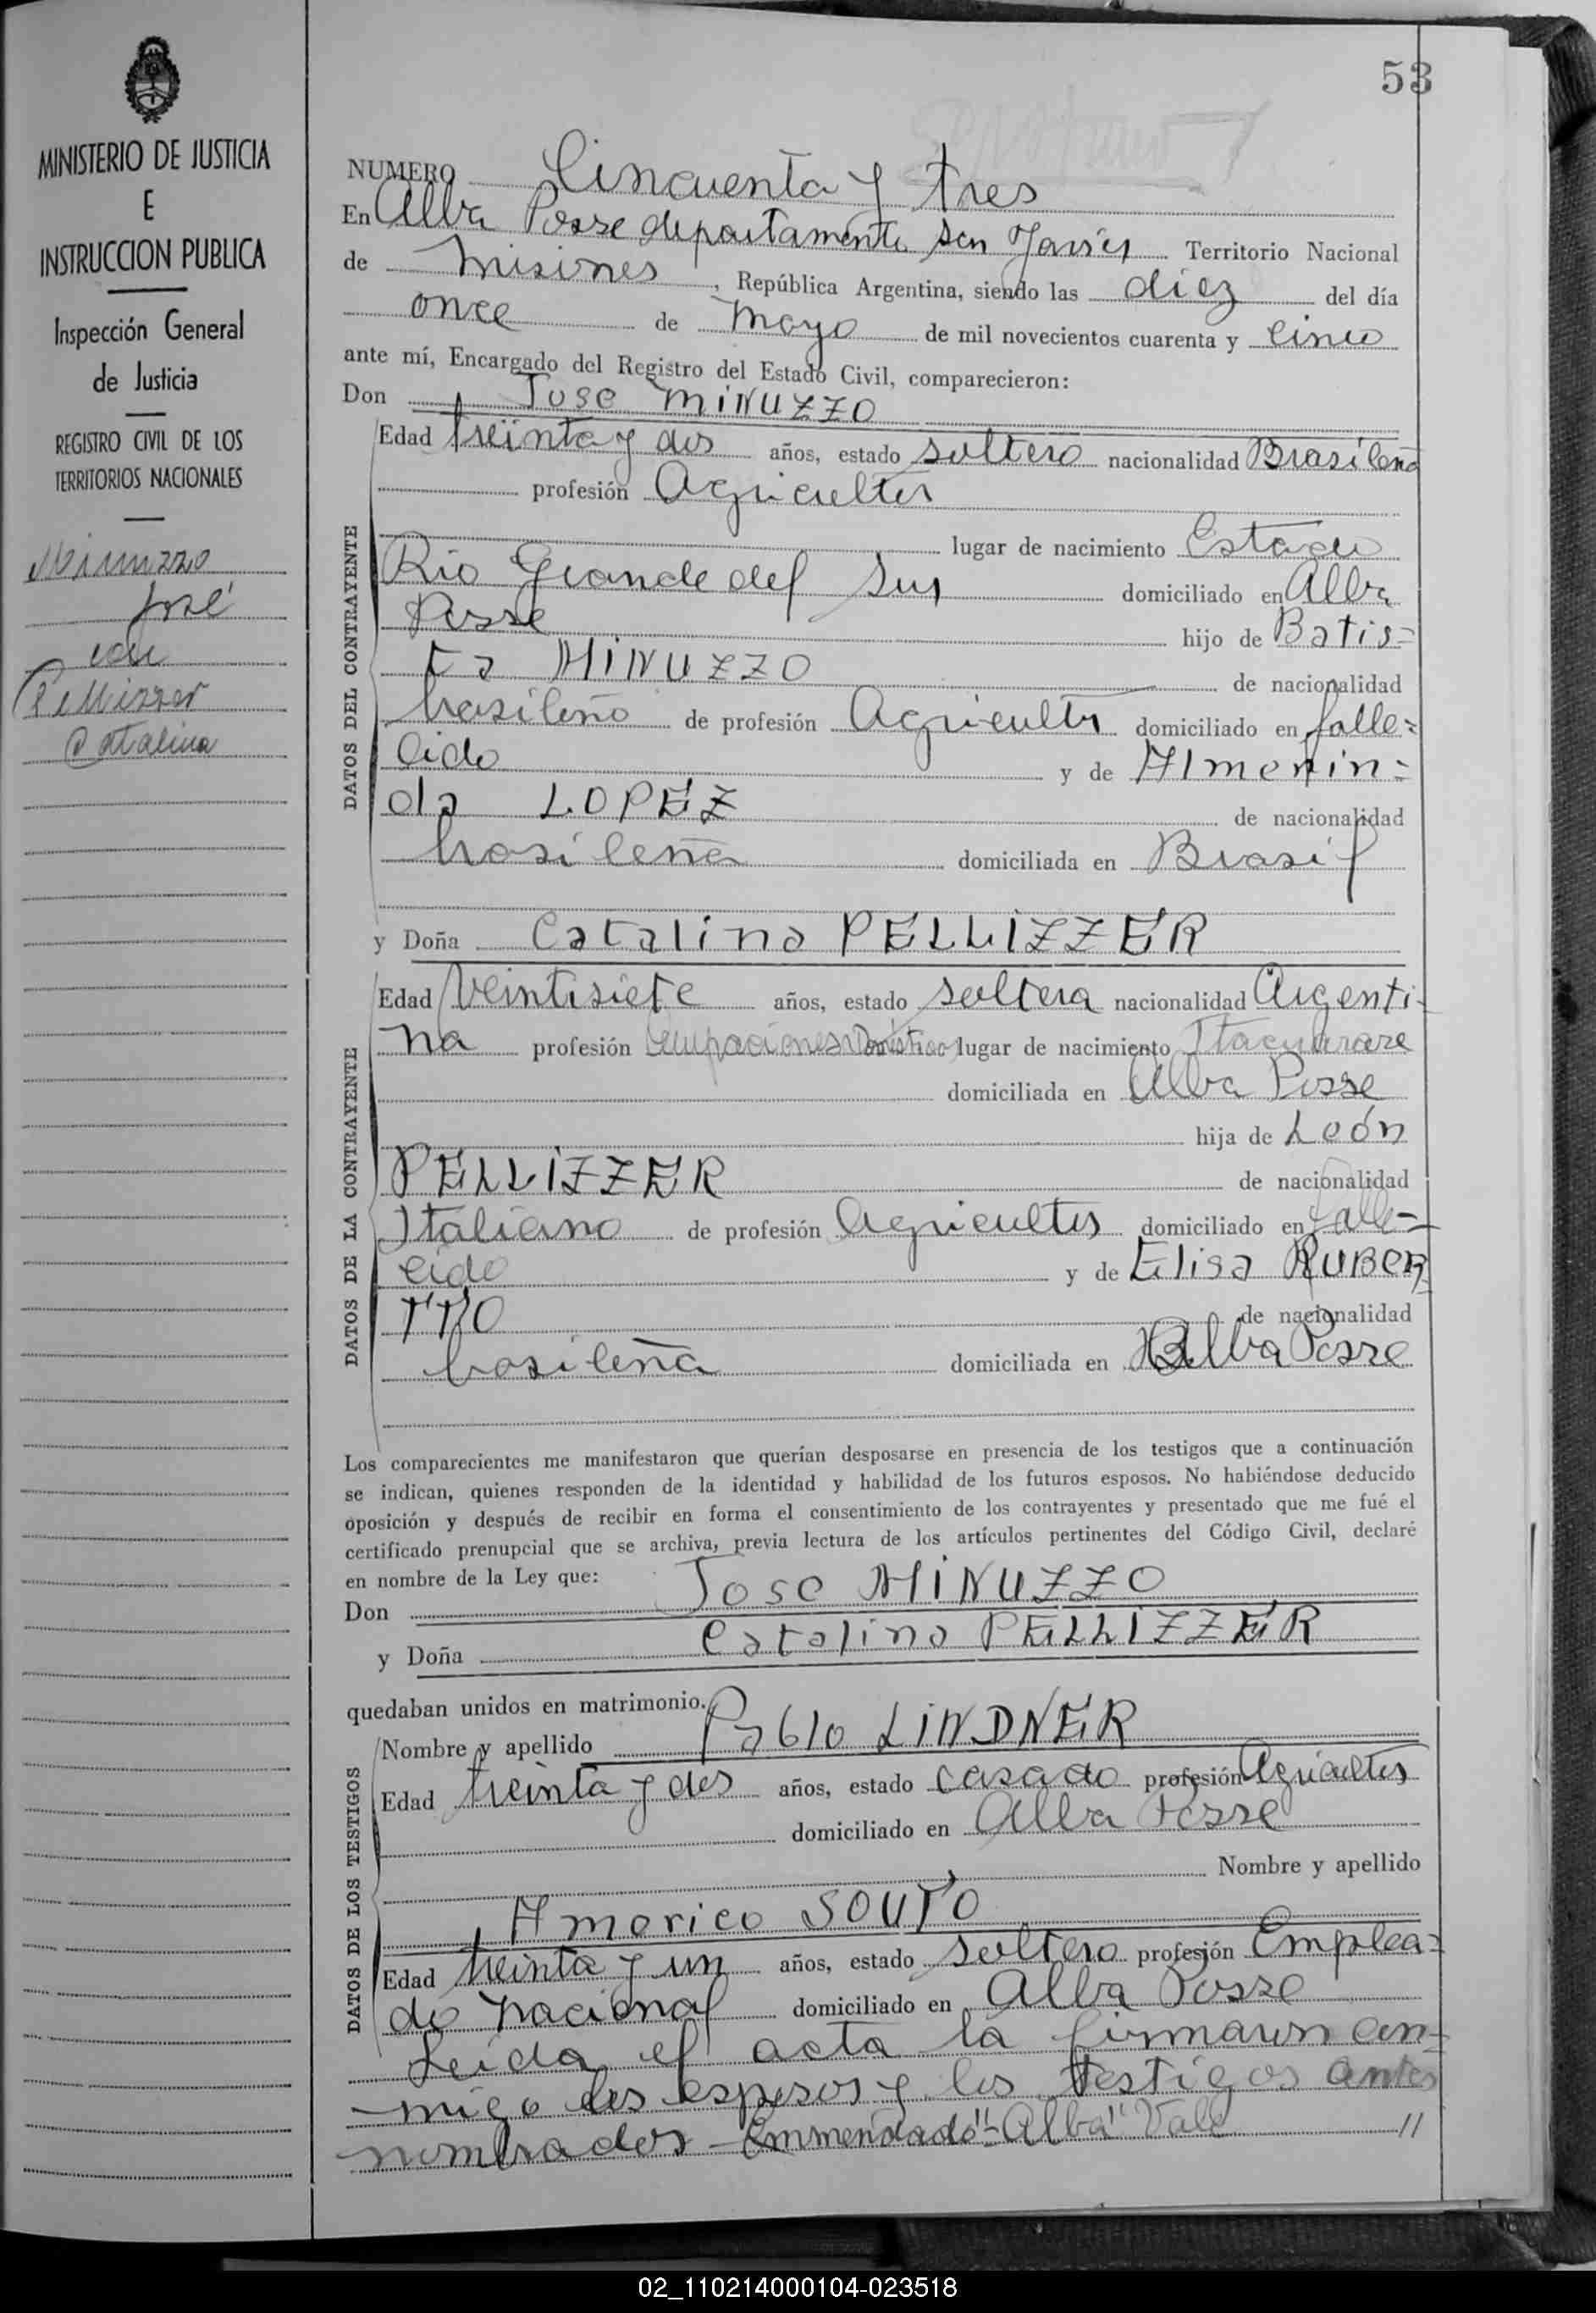 53
MINISTERIO DE JUSTICIA
E
INSTRUCCION PUBLICA
Inspección General
de Justicia
REGISTRO CIVIL DE LOS
TERRITORIOS NACIONALES
Minuzzo
José
con
Pellizzer
Catalina
NUMERO Cincuenta y tres
En Alba Posse departamento San Javier Territorio Nacional
de Misiones, República Argentina, siendo las diez del día
once de Mayo de mil novecientos cuarenta y cinco
ante mí, Encargado del Registro del Estado Civil, comparecieron:
Don Jose MINUZZO
DATOS DEL CONTRAYENTE
Edad treinta y dos años, estado soltero nacionalidad Brasileño
profesión Agricultor
lugar de nacimiento Estado
Rio Grande del Sur domiciliado en Alba
Posse hijo de Batis=
ta MINUZZO de nacionalidad
brasileño de profesión Agricultor domiciliado en falle=
cido y de Almerin=
da LOPEZ de nacionalidad
brasileña domiciliada en Brasil
y Doña Catalina PELLIZZER
DATOS DE LA CONTRAYENTE
Edad Veintisiete años, estado soltera nacionalidad Argenti-
na profesión Ocupaciones Domésticas lugar de nacimiento Itacuarare
domiciliada en Alba Posse
hija de León
PELLIZZER de nacionalidad
Italiano de profesión Agricultor domiciliado en falle-
cido y de Elisa RUBER
TTO de nacionalidad
brasileña domiciliada en Alba Posse
Los comparecientes me manifestaron que querían desposarse en presencia de los testigos que a continuación
se indican, quienes responden de la identidad y habilidad de los futuros esposos. No habiéndose deducido
oposición y después de recibir en forma el consentimiento de los contrayentes y presentado que me fué el
certificado prenupcial que se archiva, previa lectura de los artículos pertinentes del Código Civil, declaré
en nombre de la Ley que:
Don Jose MINUZZO
y Doña Catalina PELLIZZER
quedaban unidos en matrimonio.
DATOS DE LOS TESTIGOS
Nombre y apellido Pablo LINDNER
Edad treinta y dos años, estado casado profesión Agricultor
domiciliado en Alba Posse
Nombre y apellido
Americo SOUTO
Edad treinta y un años, estado soltero profesión Emplea=
do Nacional domiciliado en Alba Posse
Leida el acta la firmaron con-
migo los esposos y los testigos antes
nombrados - Enmendado "-Alba" Vale //
02_110214000104-023518